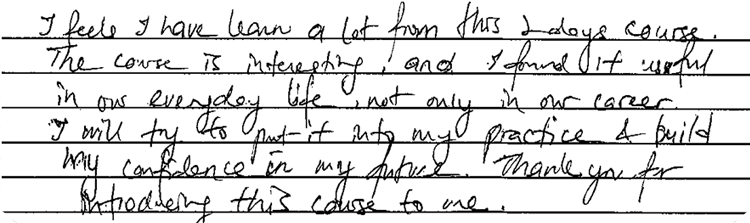 I feels I have learn a lot from this 2 days course.
The course is interesting, and I found it useful
in our everyday life, not only in our career.
I will try to put it into my practice & build
my confidence in my future. Thank you for
introducing this course to me.